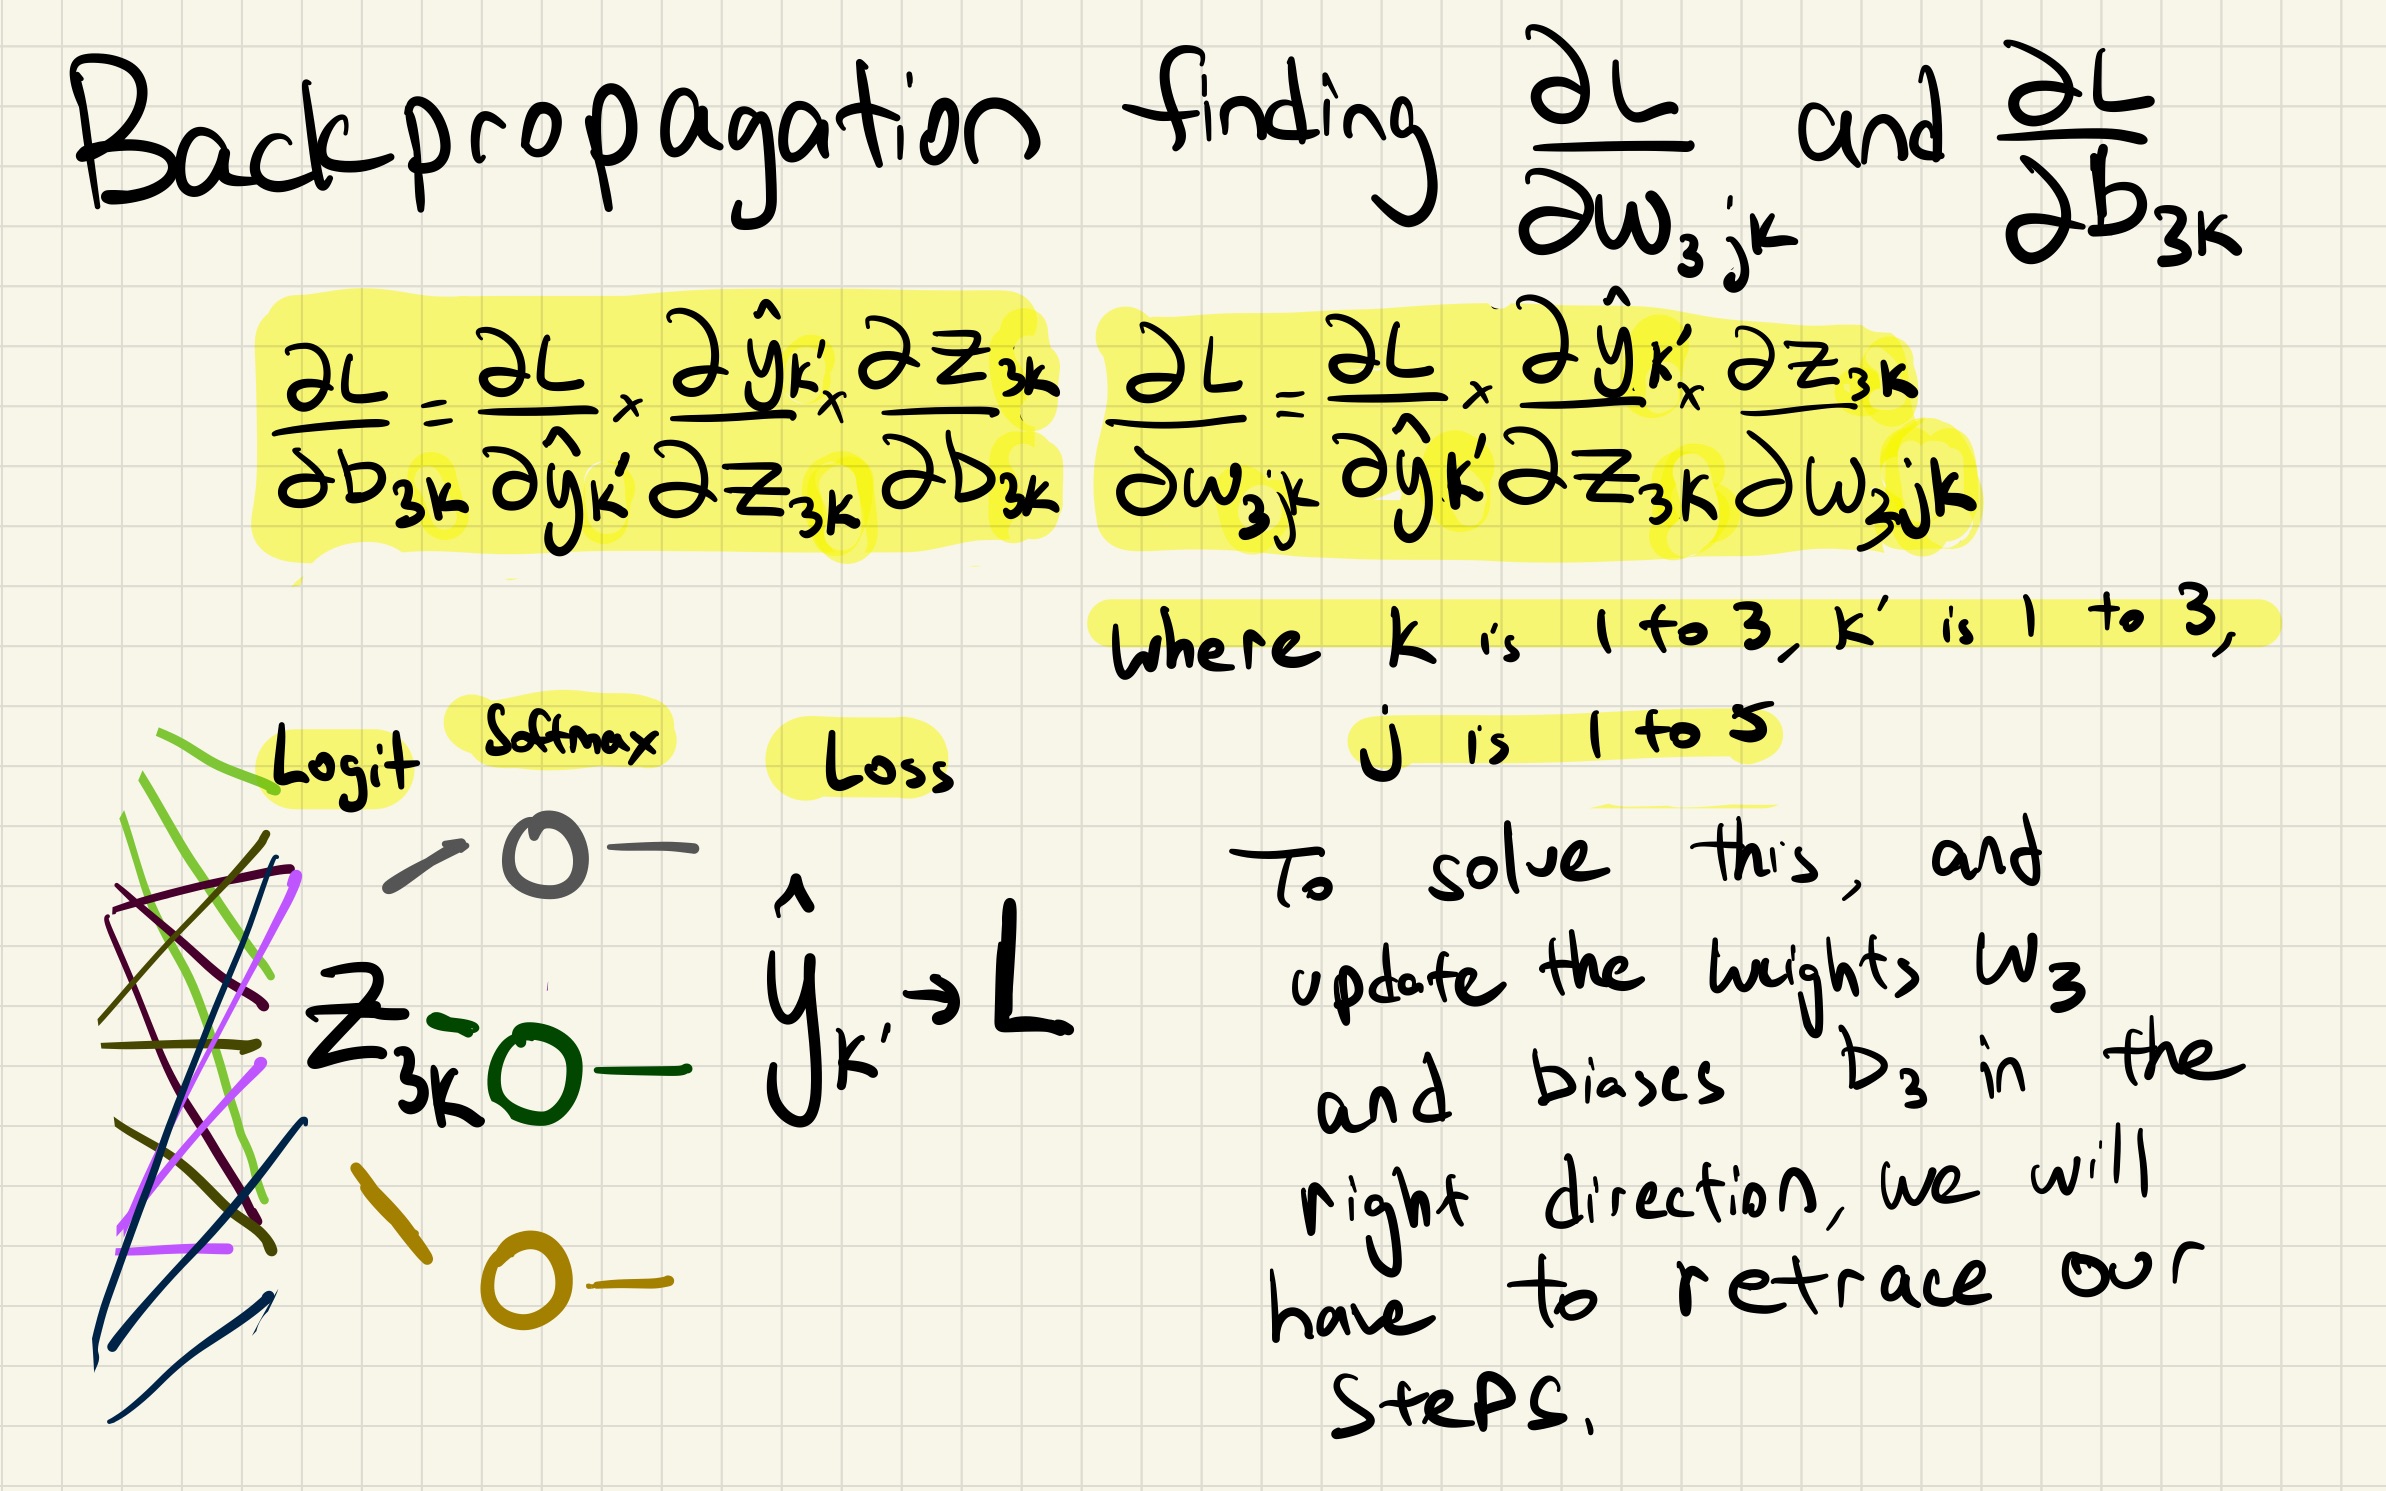 Backpropagation finding ∂L/∂w₃ⱼₖ and ∂L/∂b₃ₖ
∂L/∂b₃ₖ = ∂L/∂ŷₖ′ × ∂ŷₖ′/∂z₃ₖ × ∂z₃ₖ/∂b₃ₖ
∂L/∂w₃ⱼₖ = ∂L/∂ŷₖ′ × ∂ŷₖ′/∂z₃ₖ × ∂z₃ₖ/∂w₃ⱼₖ
where k is 1 to 3, k′ is 1 to 3,
j is 1 to 5
Logit Softmax Loss
z₃ₖ ŷₖ′ → L
To solve this, and
update the weights W₃
and biases b₃ in the
right direction, we will
have to retrace our
steps.